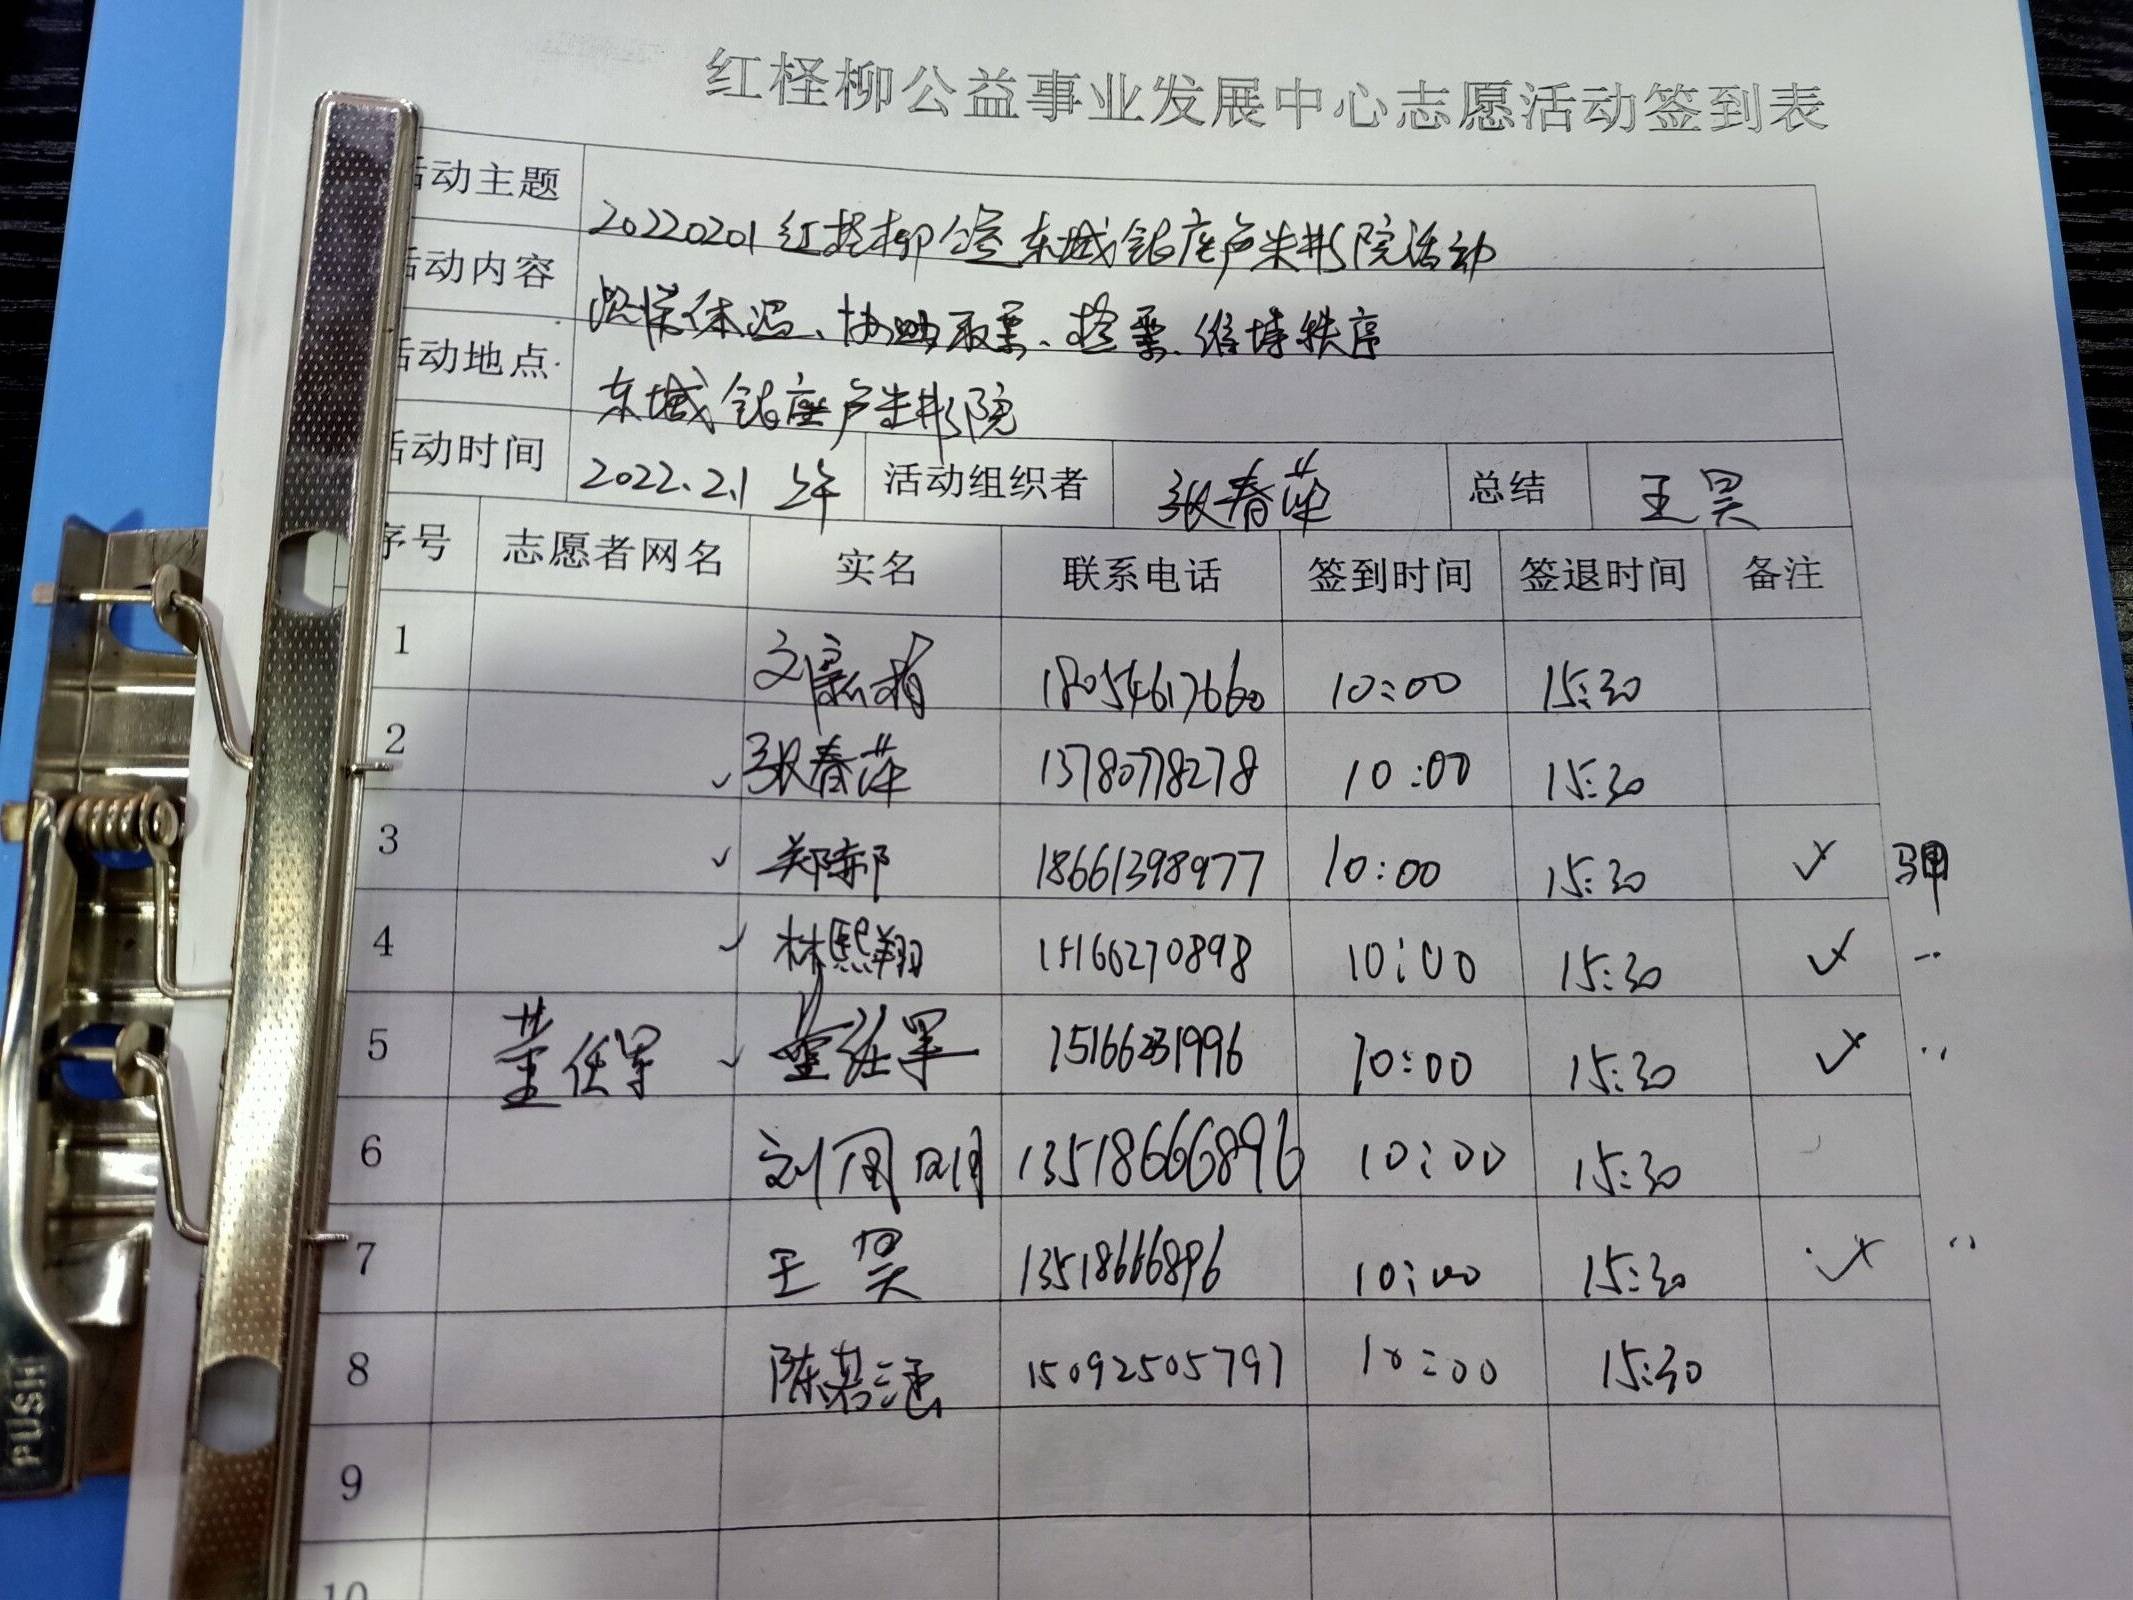 红柽柳公益事业发展中心志愿活动签到表
活动主题 20220201红柽柳公益东城银座卢米影院活动
活动内容 体温、协助取票、检票、维持秩序
活动地点 东城银座卢米影院
活动时间 2022.2.1 上午 活动组织者 张春萍 总结 王昊
序号 志愿者网名 实名 联系电话 签到时间 签退时间 备注
1 18054617660 10:00 15:30
2 ✓ 张春萍 13780778278 10:00 15:30
3 ✓ 郑郝 18661398977 10:00 15:30 ✓ 马甲
4 ✓ 林熙翔 10:00 15:30 ✓ ··
5 董任军 ✓ 董任军 15166231996 10:00 15:30 ✓ ··
6 刘 13518666896 10:00 15:30
7 王昊 13518666896 10:00 15:30 ✓ ··
8 陈若涵 15092505797 10:00 15:30
9
10
PUSH